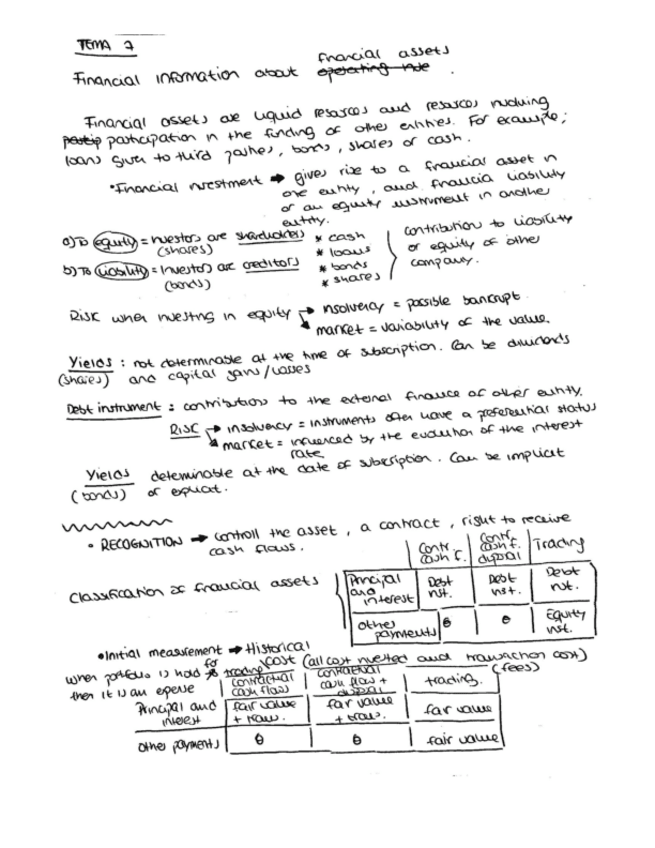 TEMA 7
Financial information about financial assets.
Financial assets are liquid resources and resources involving
participation in the funding of other entities. For example;
loans given to third parties, bonds, shares or cash.
• Financial investment → gives rise to a financial asset in
one entity, and financial liability
or an equity instrument in another
entity.
a) To equity = investors are shareholders
(shares)
b) To liability = investors are creditors
(bonds)
* cash
* loans
* bonds
* shares
contribution to liability
or equity of other
company.
Risk when investing in equity → insolvency = possible bankrupt.
market = variability of the value.
Yields : not determinable at the time of subscription. Can be dividends
(shares) and capital gains/losses
Debt instrument : contributions to the external finance of other entity.
RISK → insolvency = instruments often have a preferential status
market = influenced by the evolution of the interest
rate
Yields determinable at the date of subscription. Can be implicit
(bonds) or explicit.
• RECOGNITION → controll the asset, a contract, right to receive
cash flows.
Classification of financial assets
Contr. cash f. | Contr. cash f. disposal | Trading
Principal and interest | Debt inst. | Debt inst. | Debt inst.
Other payments | θ | θ | Equity inst.
• Initial measurement → Historical
cost (all cost invested and transaction cost)
(fees)
When portfolio is hold for trading
then it is an epense
contractual cash flows | contractual cash flow + disposal | trading.
Principal and interest | fair value + tran. | fair value + tran. | fair value
other payments | θ | θ | fair value